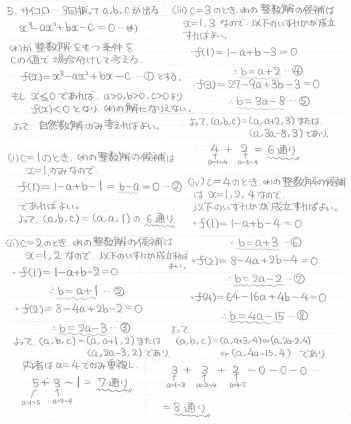 B. サイコロ…3回振って a,b,c が出る
x³-ax²+bx-c=0 …(*)
(*)が整数解をもつ条件を
cの値で場合分けして考える.
f(x)=x³-ax²+bx-c …① とする。
もし x≦0 であれば, a>0, b>0, c>0 より
f(x)<0 となり, (*)の解となりえない。
よって, 自然数解のみ考えればよい。
(i) c=1のとき, (*)の整数解の候補は
x=1のみなので
f(1)=1-a+b-1=b-a=0 …②
であればよい。
よって, (a,b,c)=(a,a,1) の 6通り.
(ii) c=2のとき (*)の整数解の候補は
x=1,2 なので, 以下のいずれかが成立すれば
よい。
・f(1)=1-a+b-2=0
∴b=a+1 …②
・f(2)=8-4a+2b-2=0
∴b=2a-3 …③
よって, (a,b,c)=(a,a+1,2) または
(a,2a-3,2) であり,
両者は a=4 でのみ重複し.
5+3-1=7通り
a=1~5 a=2~4
(iii) c=3のとき, (*)の整数解の候補は
x=1,3 なので, 以下のいずれかが成立
すればよい。
・f(1)=1-a+b-3=0
∴b=a+2 …④
・f(3)=27-9a+3b-3=0
∴b=3a-8 …⑤
よって, (a,b,c)=(a,a+2,3) または.
(a,3a-8,3) であり,
4+2=6通り
a=1~4 a=3~4
(iv) c=4のとき, (*)の整数解の候補は
x=1,2,4 なので,
以下のいずれかが成立すればよい。
・f(1)=1-a+b-4=0
∴b=a+3 …⑥
・f(2)=8-4a+2b-4=0
∴b=2a-2 …⑦
・f(4)=64-16a+4b-4=0
∴b=4a-15 …⑧
よって
(a,b,c)=(a,a+3,4) or (a,2a-2,4)
or (a,4a-15,4) であり
3+3+2-0-0-0
a=1~3 a=2~4 a=4~5
=8通り